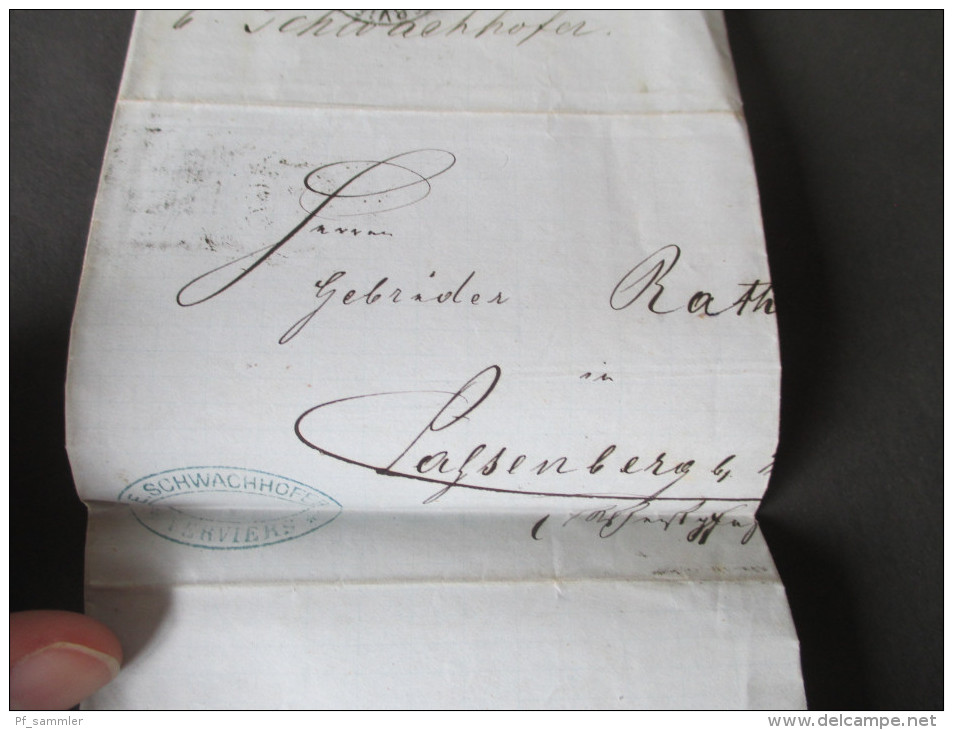 Schwachhofer.
Herren
Gebrüder Rath
in
Sahsenberg b,
E. SCHWACHHOFER
VERVIERS
Pf_sammler
www.delcampe.net